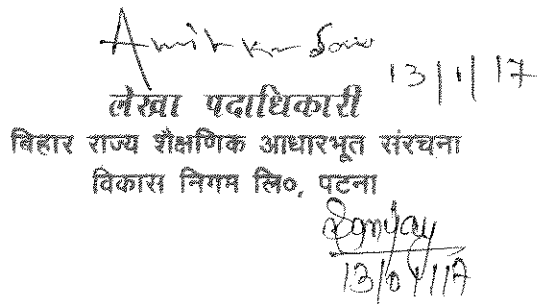 Amit kr
13/1/17
लेखा पदाधिकारी
बिहार राज्य शैक्षणिक आधारभूत संरचना
विकास निगम लि०, पटना
Sanjay
13/01/17